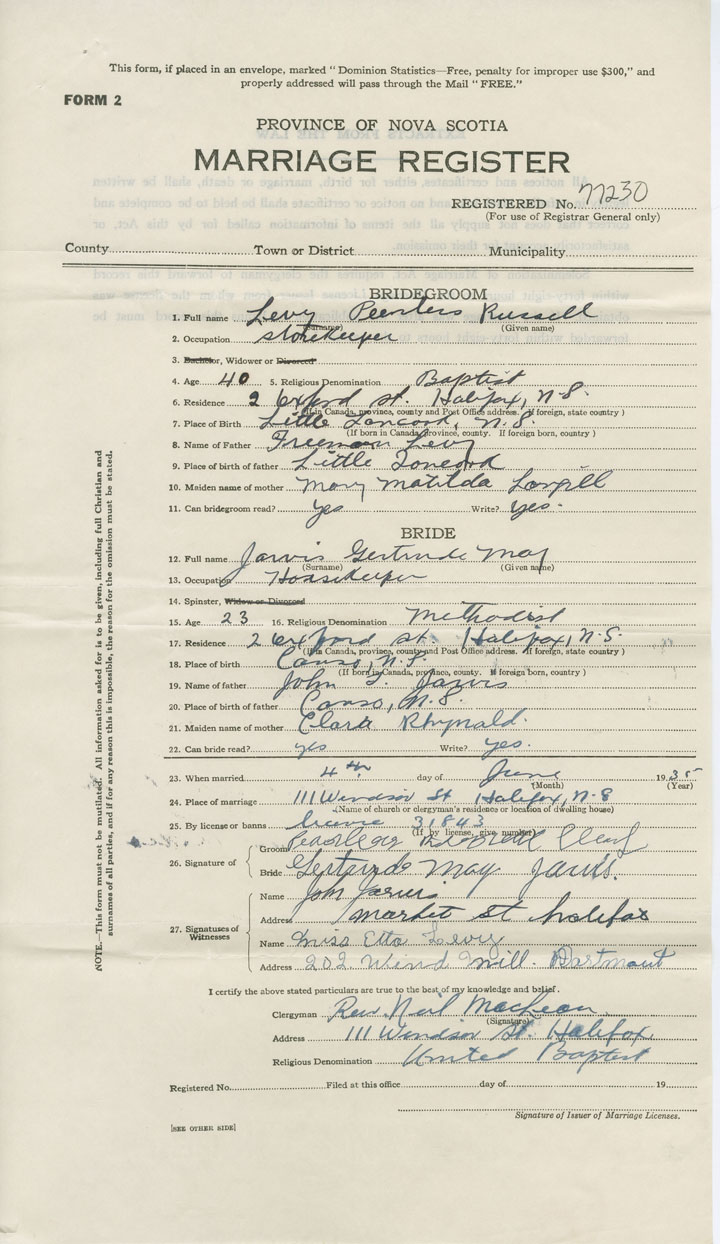 This form, if placed in an envelope, marked " Dominion Statistics—Free, penalty for improper use $300," and
properly addressed will pass through the Mail " FREE."
FORM 2
PROVINCE OF NOVA SCOTIA
MARRIAGE REGISTER
REGISTERED No. 77230
(For use of Registrar General only)
County Town or District Municipality
BRIDEGROOM
1. Full name Levy Russell
(Surname) (Given name)
2. Occupation Storekeeper
3. Bachelor, Widower or Divorced
4. Age 40 5. Religious Denomination Baptist
6. Residence 2 Oxford st. Halifax, N.S.
(If in Canada, province, county and Post Office address. If foreign, state country )
7. Place of Birth Little N.S.
(If born in Canada, province, county. If foreign born, country )
8. Name of Father Freeman Levy
9. Place of birth of father Little
10. Maiden name of mother Mary Matilda
11. Can bridegroom read? Yes Write? Yes.
BRIDE
12. Full name Jarvis Gertrude May
(Surname) (Given name)
13. Occupation Housekeeper
14. Spinster, Widow or Divorced
15. Age 23 16. Religious Denomination Methodist
17. Residence 2 Oxford st. Halifax, N.S.
(If in Canada, province, county and Post Office address. If foreign, state country )
18. Place of birth Canso, N.S.
(If born in Canada, province, county. If foreign born, country )
19. Name of father John Jarvis
20. Place of birth of father Canso, N.S.
21. Maiden name of mother Clara Rhynald.
22. Can bride read? yes Write? yes.
23. When married 4th day of June 1935
(Month) (Year)
24. Place of marriage 111 Windsor St Halifax, N-S
(Name of church or clergyman's residence or location of dwelling house)
25. By license or banns licence 31843
(If by license, give number)
26. Signature of
Groom
Bride Gertrude May Jarvis.
27. Signatures of Witnesses
Name John Jarvis
Address market st halifax
Name Miss Etta Levy
Address 202 Wind mill. Dartmout
I certify the above stated particulars are true to the best of my knowledge and belief.
Clergyman Rev. Neil MacLean
(Signature)
Address 111 Windsor St. Halifax
Religious Denomination United Baptist
Registered No. Filed at this office day of 19
Signature of Issuer of Marriage Licenses.
[SEE OTHER SIDE]
NOTE.—This form must not be mutilated. All information asked for is to be given, including full Christian and
surnames of all parties, and if for any reason this is impossible, the reason for the omission must be stated.